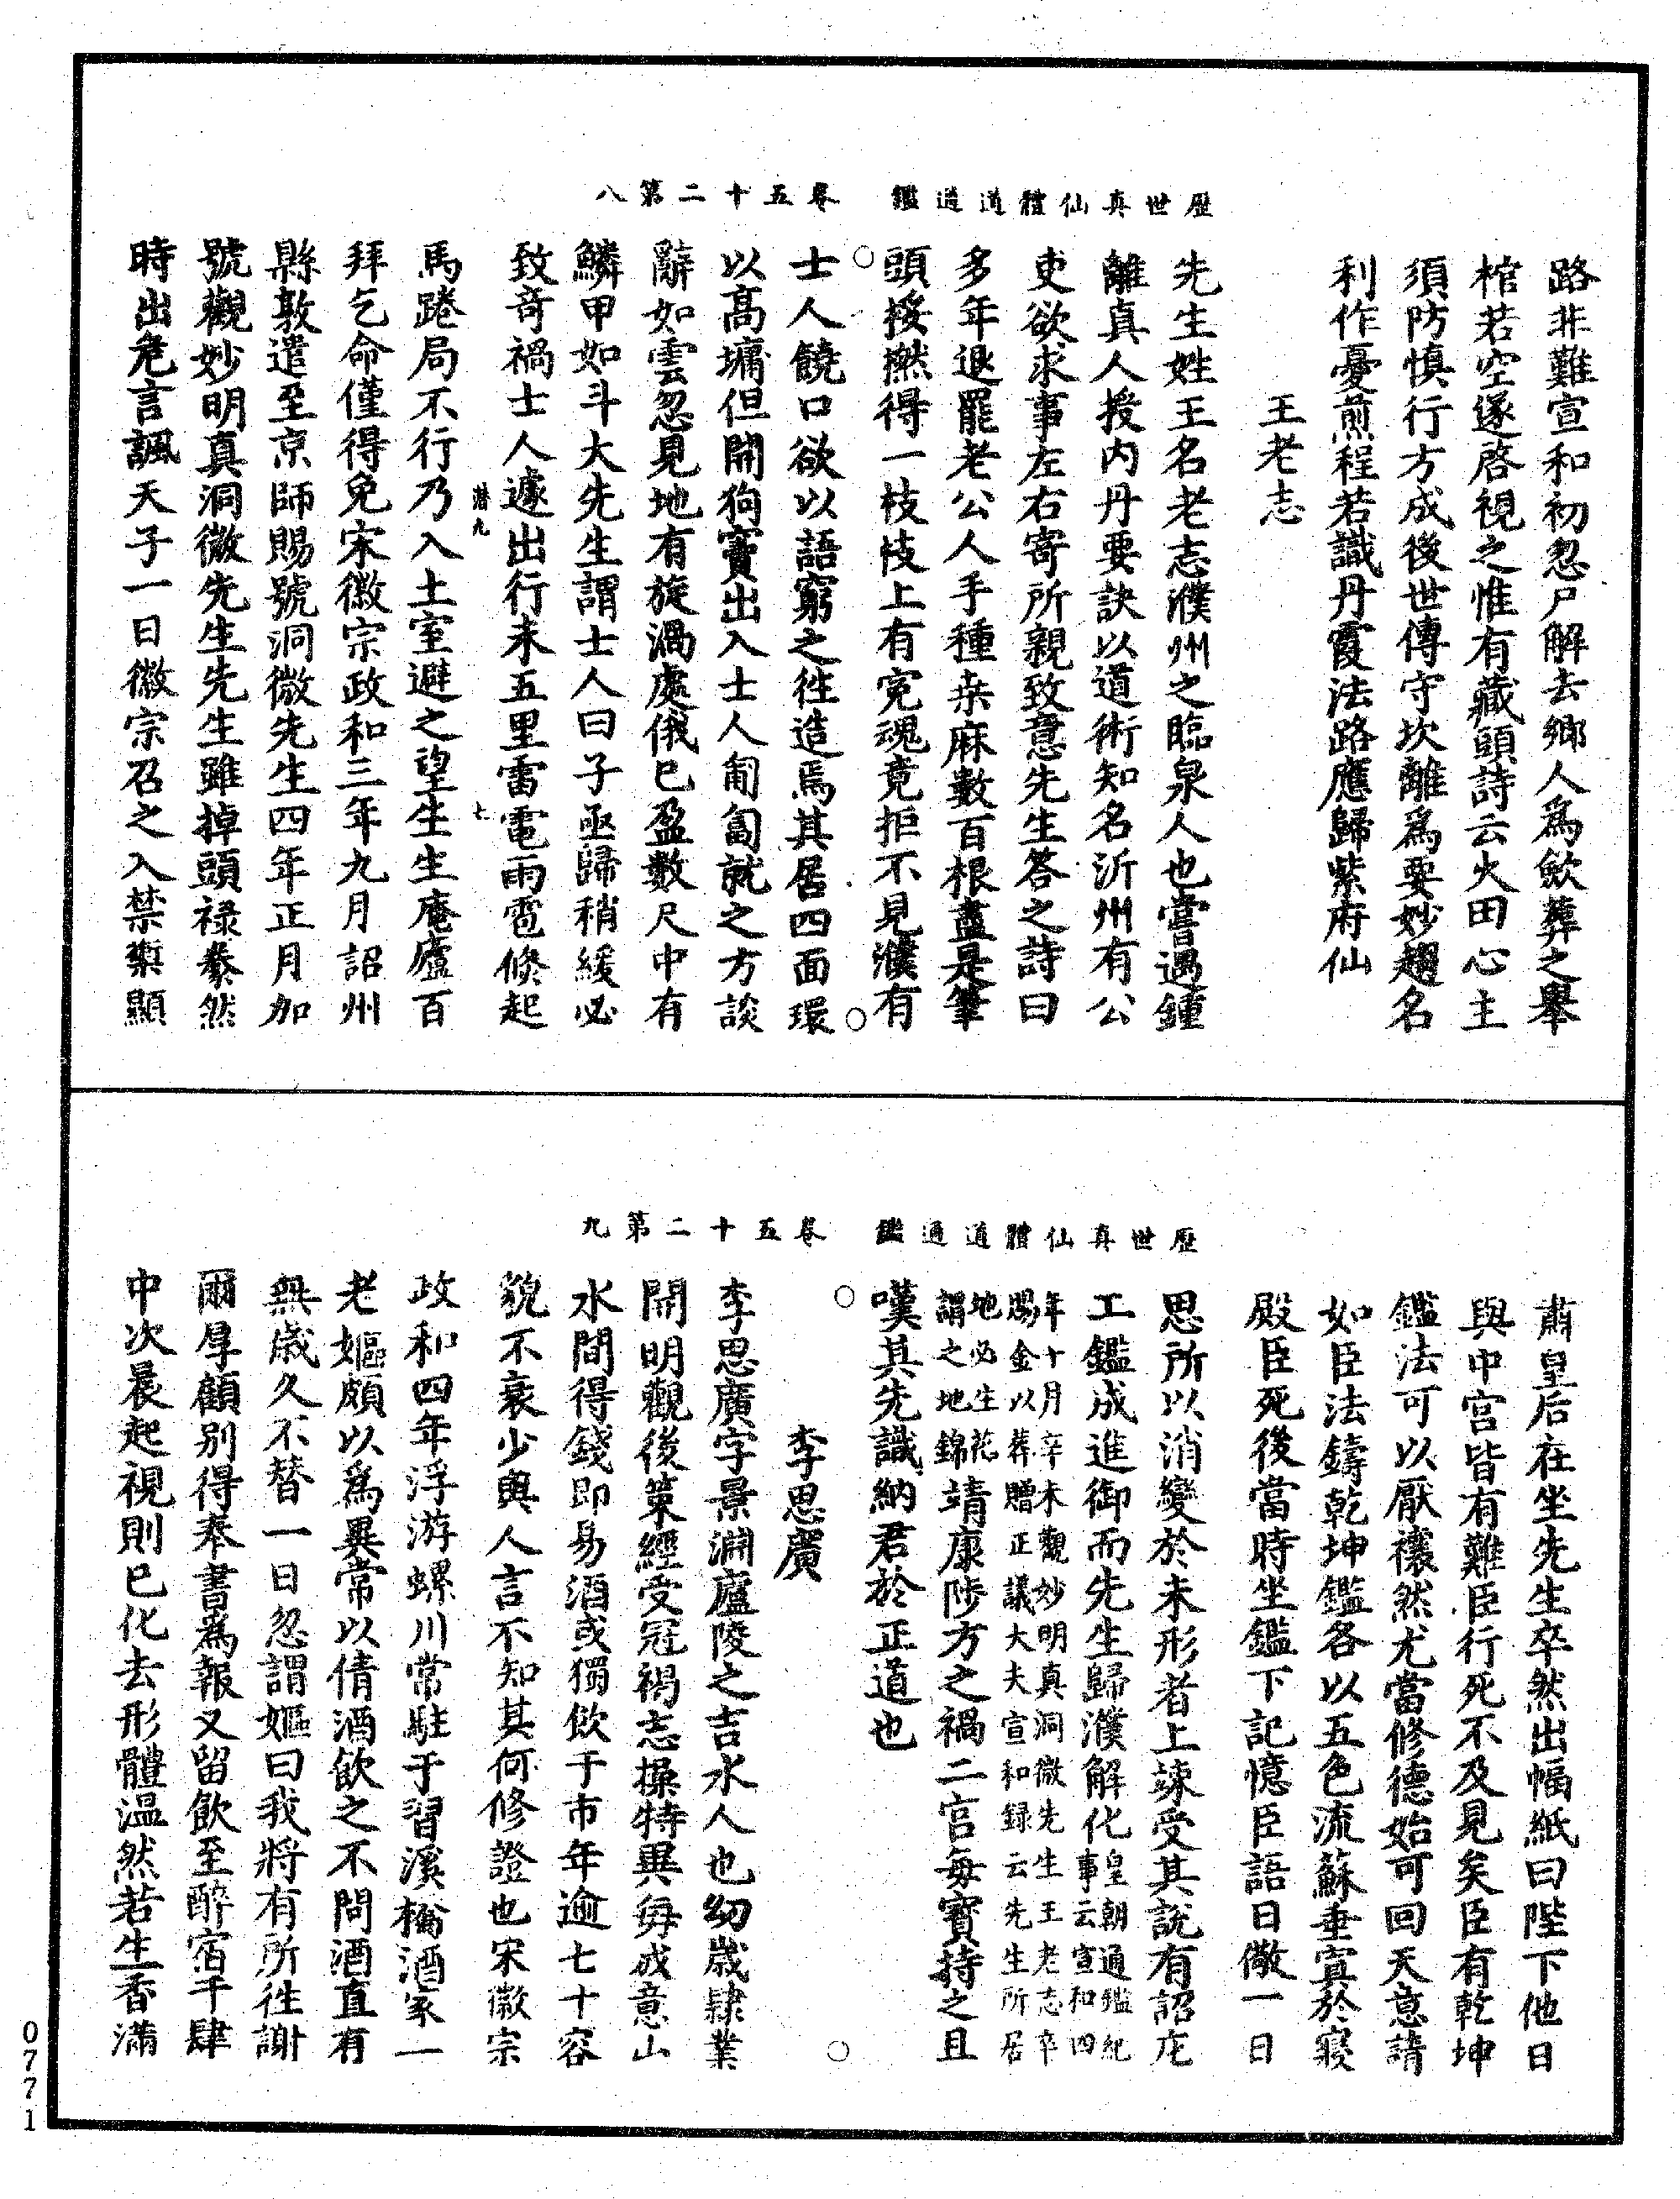 歷世真仙體道通鑑　卷五十二第八
路非難宣和初忽尸解去鄉人為歛葬之舉
棺若空遂啓視之惟有藏頭詩云火田心主
須防慎行方成後世傳守坎離為要妙趨名
利作憂煎程若識丹霞法路應歸紫府仙
王老志
先生姓王名老志濮州之臨泉人也嘗遇鍾
離真人授内丹要訣以道術知名沂州有公
吏欲求事左右寄所親致意先生答之詩曰
多年退罷老公人手種桒麻數百根盡是筆
頭挼撚得一枝枝上有寃魂竟拒不見濮有
士人饒口欲以語窮之徃造焉其居四面環
以高墉但開狗竇出入士人匍匐就之方談
辭如雲忽見地有旋渦處俄已盈數尺中有
鱗甲如斗大先生謂士人曰子亟歸稍緩必
致奇禍士人遽出行未五里雷電雨雹倏起
潜九　七
馬踡局不行乃入土室避之望生生庵廬百
拜乞命僅得免宋徽宗政和三年九月詔州
縣敦遣至京師賜號洞微先生四年正月加
號觀妙明真洞微先生先生雖掉頭禄豢然
時出危言諷天子一日徽宗召之入禁藥顯
歷世真仙體道通鑑　卷五十二第九
肅皇后在坐先生卒然出幅紙曰陛下他日
與中宫皆有難臣行死不及見矣臣有乾坤
鑑法可以厭禳然尤當修德始可回天意請
如臣法鑄乾坤鑑各以五色流蘇垂寘於寢
殿臣死後當時坐鑑下記憶臣語日儆一日
思所以消變於未形者上竦受其説有詔庀
工鑑成進御而先生歸濮解化皇朝通鑑紀
事云宣和四
年十月辛未觀妙明真洞微先生王老志卒
賜金以葬贈正議大夫宣和録云先生所居
地必生花
謂之地錦靖康陟方之禍二宫每寳持之且
嘆其先識納君於正道也
李思廣
李思廣字景淵廬陵之吉水人也幼歲隷業
開明觀後策經受冠褐志操特異每成意山
水間得錢即易酒或獨飲于市年逾七十容
貌不衰少與人言不知其何修證也宋徽宗
政和四年浮游螺川常駐于習溪橋酒家一
老嫗頗以為異常以倩酒飲之不問酒直有
無歲久不替一日忽謂嫗曰我將有所徃謝
爾厚顧别得奉書為報又留飲至醉宿于肆
中次晨起視則已化去形體温然若生香滿
0771